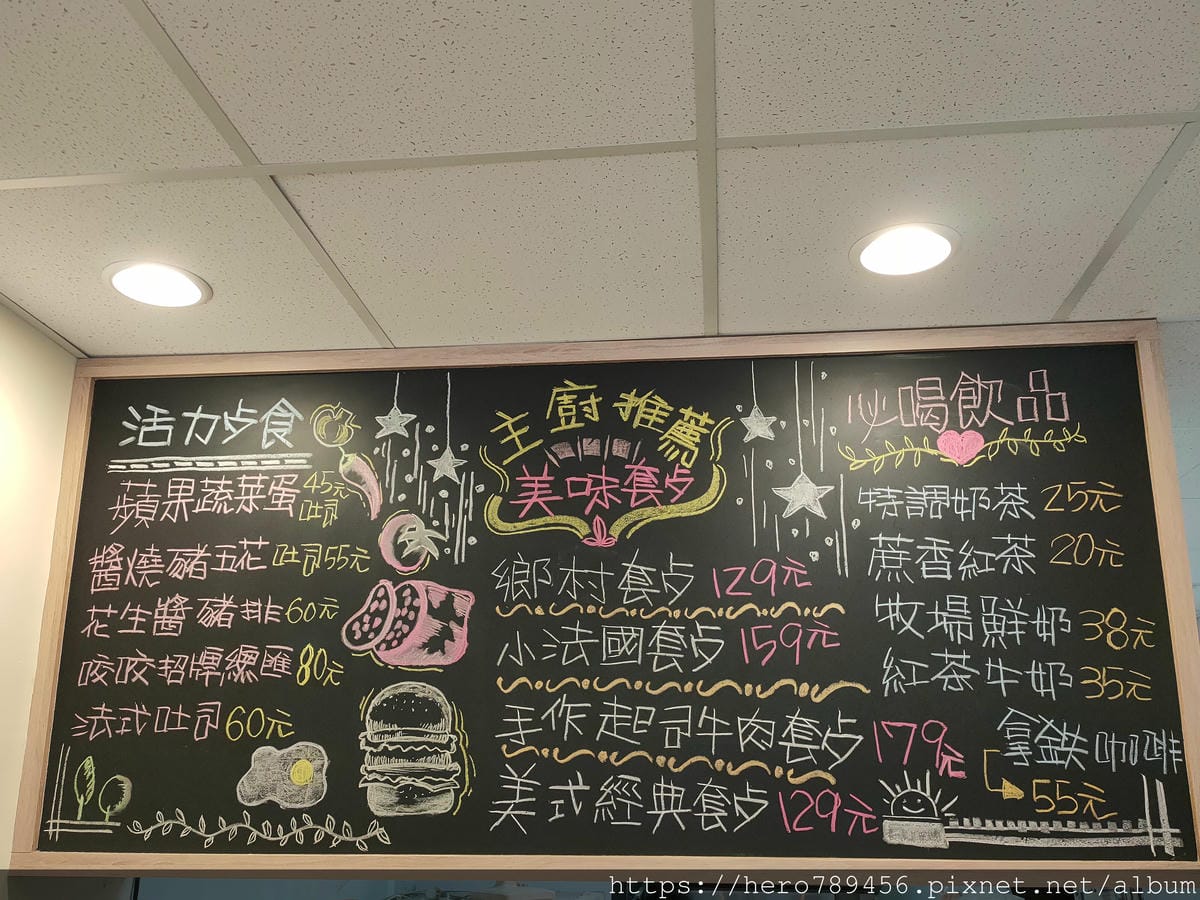 活力歺食
蘋果蔬菜蛋 45元
吐司
醬燒豬五花 吐司55元
花生醬豬排 60元
咬咬招牌總匯 80元
法式吐司 60元
主廚推薦
美味套歺
鄉村套歺 129元
小法國套歺 159元
手作起司牛肉套歺 179元
美式經典套歺 129元
必喝飲品
特調奶茶 25元
蔗香紅茶 20元
牧場鮮奶 38元
紅茶牛奶 35元
拿鐵咖啡
55元
https://hero789456.pixnet.net/album